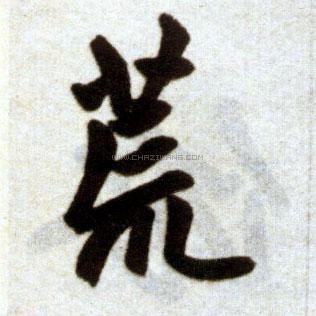 荒
WWW.CHAZIWANG.COM